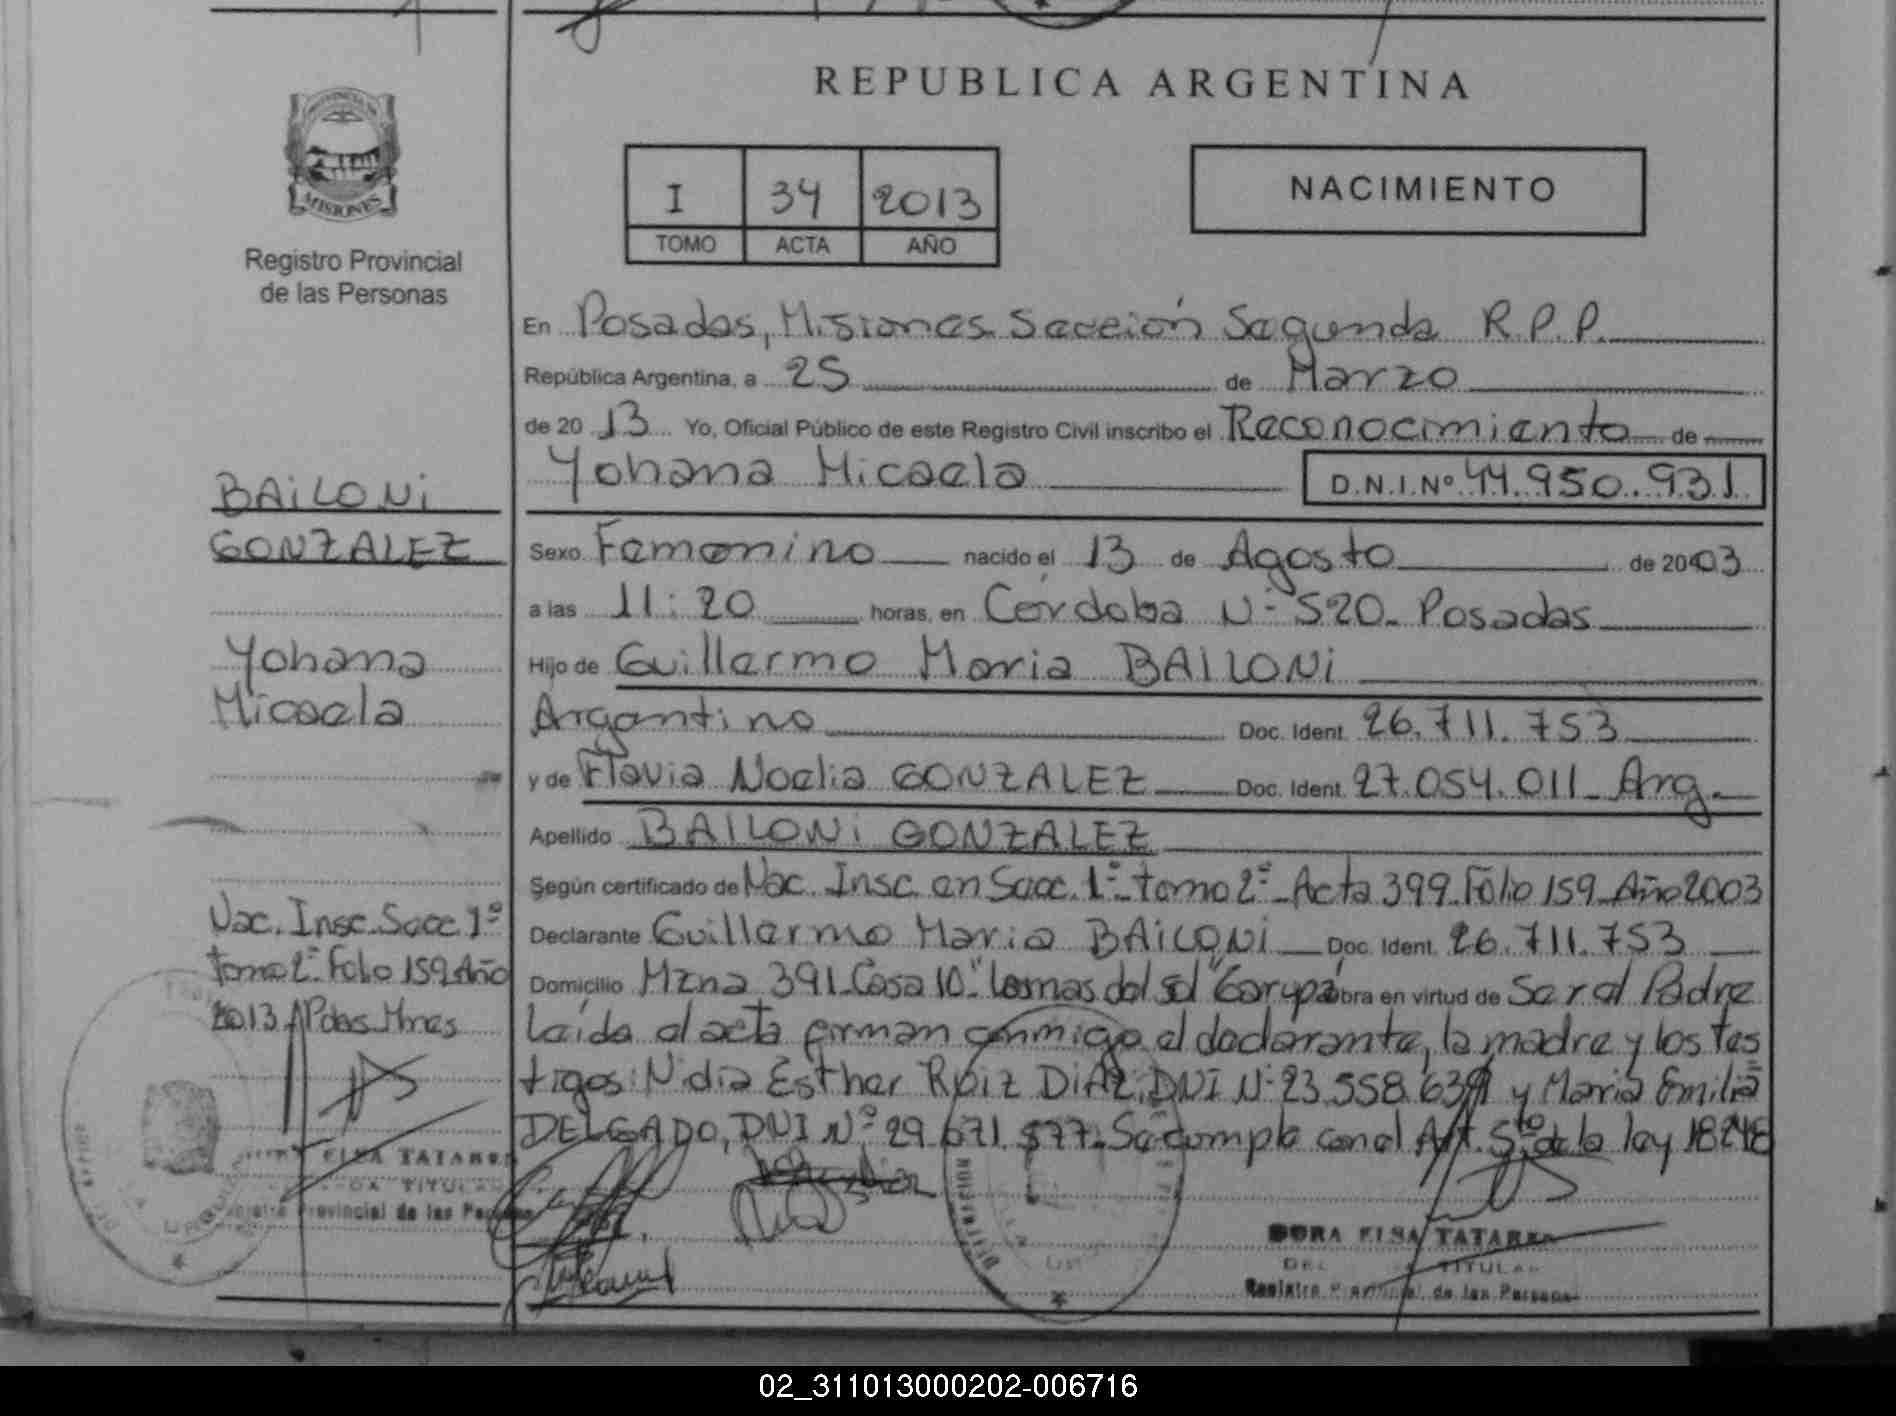 REPUBLICA ARGENTINA
PROVINCIA DE
MISIONES
Registro Provincial
de las Personas
I 34 2013
TOMO ACTA AÑO
NACIMIENTO
En Posadas, Misiones Sección Segunda R.P.P.
República Argentina, a 25 de Marzo
de 2013 Yo, Oficial Público de este Registro Civil inscribo el Reconocimiento de
Yohana Micaela D.N.I. Nº 44.950.931
Sexo Femenino nacido el 13 de Agosto de 2003
a las 11:20 horas, en Córdoba Nº 520. Posadas
Hijo de Guillermo Maria BAILONI
Argentino Doc. Ident. 26.711.753
y de Flavia Noelia GONZALEZ Doc. Ident. 27.054.011 Arg.
Apellido BAILONI GONZALEZ
Según certificado de Nac. Insc. en Secc. 1º tomo 2º Acta 399 Folio 159 Año 2003
Declarante Guillermo Maria BAILONI Doc. Ident. 26.711.753
Domicilio Mzna 391 Casa 10 "Lomas del sol" Garupá obra en virtud de Ser el Padre
Leída el acta firman conmigo el declarante, la madre y los tes
tigos: Nidia Esther RUIZ DIAZ, DNI Nº 23.558.639 y Maria Emilia
DELGADO, DNI Nº 29.671.577. Se cumple con el Art. 5to de la ley 18248
DORA ELSA TATAREN
TITULAR
Registro Provincial de las Personas
BAILONI
GONZALEZ
Yohana
Micaela
Nac. Insc. Secc. 1º
tomo 2º Folio 159 Año
2013 Pdas Mnes
ELSA TATAREN
TITULAR
Registro Provincial de las
02_311013000202-006716